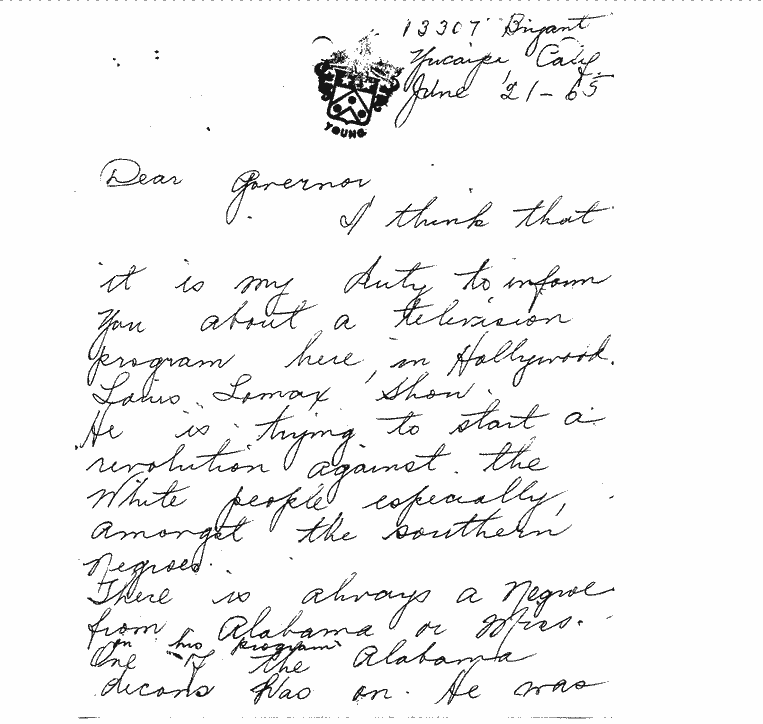 13307 Bryant
Yucaipa, Calif
June 21-65
YOUNG
Dear Governor
I think that
it is my duty to inform
You about a television
program here, in Hollywood.
Louis Lomax Show.
He is trying to start a
revolution against the
White people especially,
amongst the southern
negroes.
There is always a Negroe
from Alabama or Miss.
on his program
One of the Alabama
decons was on. He was